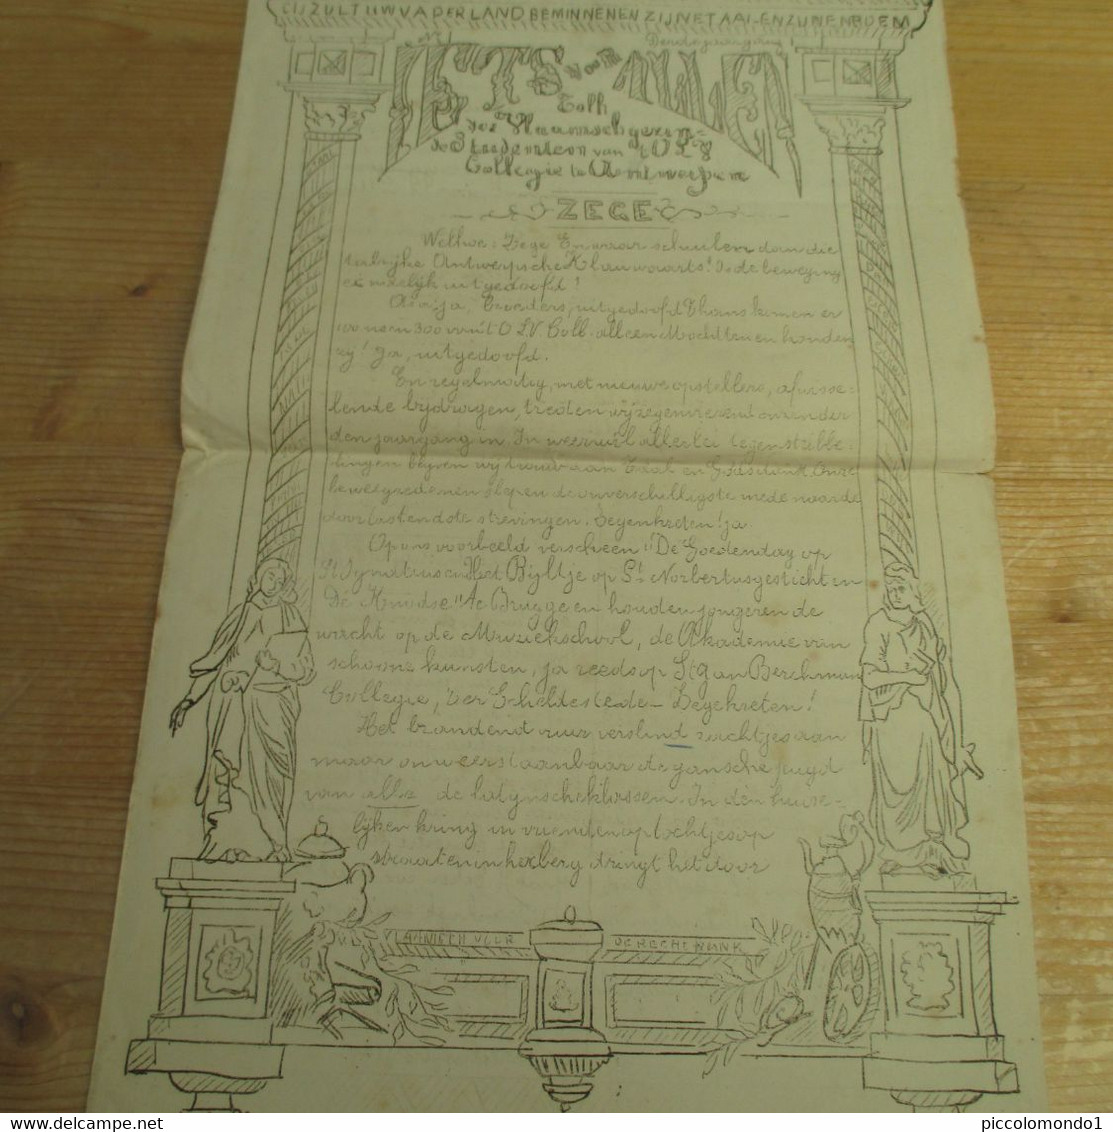 GIJ ZULT UW VADERLAND BEMINNEN EN ZIJNE TAAL EN ZIJNEN ROEM
Derde jaargang
IETS VOOR ALLEN
Tolk
der Vlaamschgezin-
de Studenten van 't O.L.V.
Collegie te Antwerpen
ZEGE
Welhoe: Zege En waar schuilen dan die
talrijke Antwerpsche Klauwaarts! Is de beweging
er uitgedoofd!
Ja ja, broeders, uitgedoofd Thans komen er
100 nen 300 uit O.L.V. Coll. alleen Mochten honden
zij! Ja, uitgedoofd.
En regelmatig, met nieuwe opstellers, afwisse-
lende bijdragen, treden wij zegevierend onzen der
den jaargang in. In weerwil allerlei tegenstribbe-
lingen blijven wij trouw aan Taal en Godsdienst. Onze
beweegredenen slepen de onverschilligste mede naar de
doorlastendste strevingen. Zegenkreten! ja
Op ons voorbeeld verscheen "De Goedendag op
St Ignatius en Het Bijltje op St Norbertusgesticht en
De Knodse" te Brugge en houden jongeren de
wacht op de Muziekschool, de Akademie van
schoone kunsten, ja reeds op St Jan Berchman
Collegie, der Scheldestede - Zegekreten!
Het brandend vuur verslind zachtjes aan
maar onweerstaanbaar de gansche jeugd
van alle de latijnsche klassen. In den huise-
lijken kring in vrienden op tochtjes op
straaten in herberg dringt het door
VLAMINGEN VOOR
DE RECHTE WERK
piccolomondo1